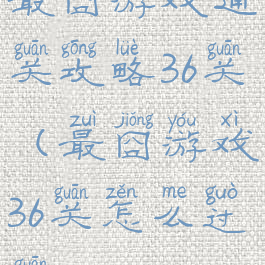 最囧游戏通
guān gōng lüè guān
关攻略36关
zuì jiǒng yóu xì
(最囧游戏
guān zěn me guò
36关怎么过
guān